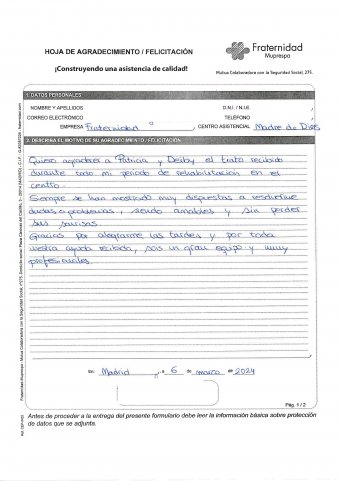 HOJA DE AGRADECIMIENTO / FELICITACIÓN
Fraternidad
Muprespa
¡Construyendo una asistencia de calidad!
Mutua Colaboradora con la Seguridad Social, 275.
1. DATOS PERSONALES
NOMBRE Y APELLIDOS
D.N.I. / N.I.E.
CORREO ELECTRÓNICO
TELÉFONO
EMPRESA Fraternidad , CENTRO ASISTENCIAL Madre de Dios
2. DESCRIBA EL MOTIVO DE SU AGRADECIMIENTO / FELICITACIÓN
Quiero agradecer a Patricia y Deiby el trato recibido
durante todo mi periodo de rehabilitación en el
centro.
Siempre se han mostrado muy dispuestos a resolverme
dudas o problemas, siendo amables y sin perder
sus sonrisas.
Gracias por alegrarme las tardes y por toda
vuestra ayuda recibida, sois un gran equipo y muy
profesionales.
En Madrid , a 6 de marzo de 2024
Pág. 1 / 2
Antes de proceder a la entrega del presente formulario debe leer la información básica sobre protección
de datos que se adjunta.